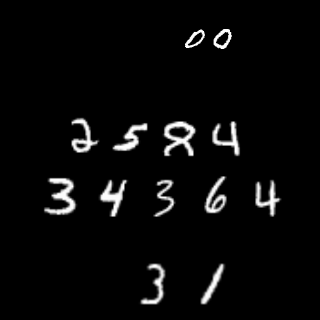 00
2584
34364
31